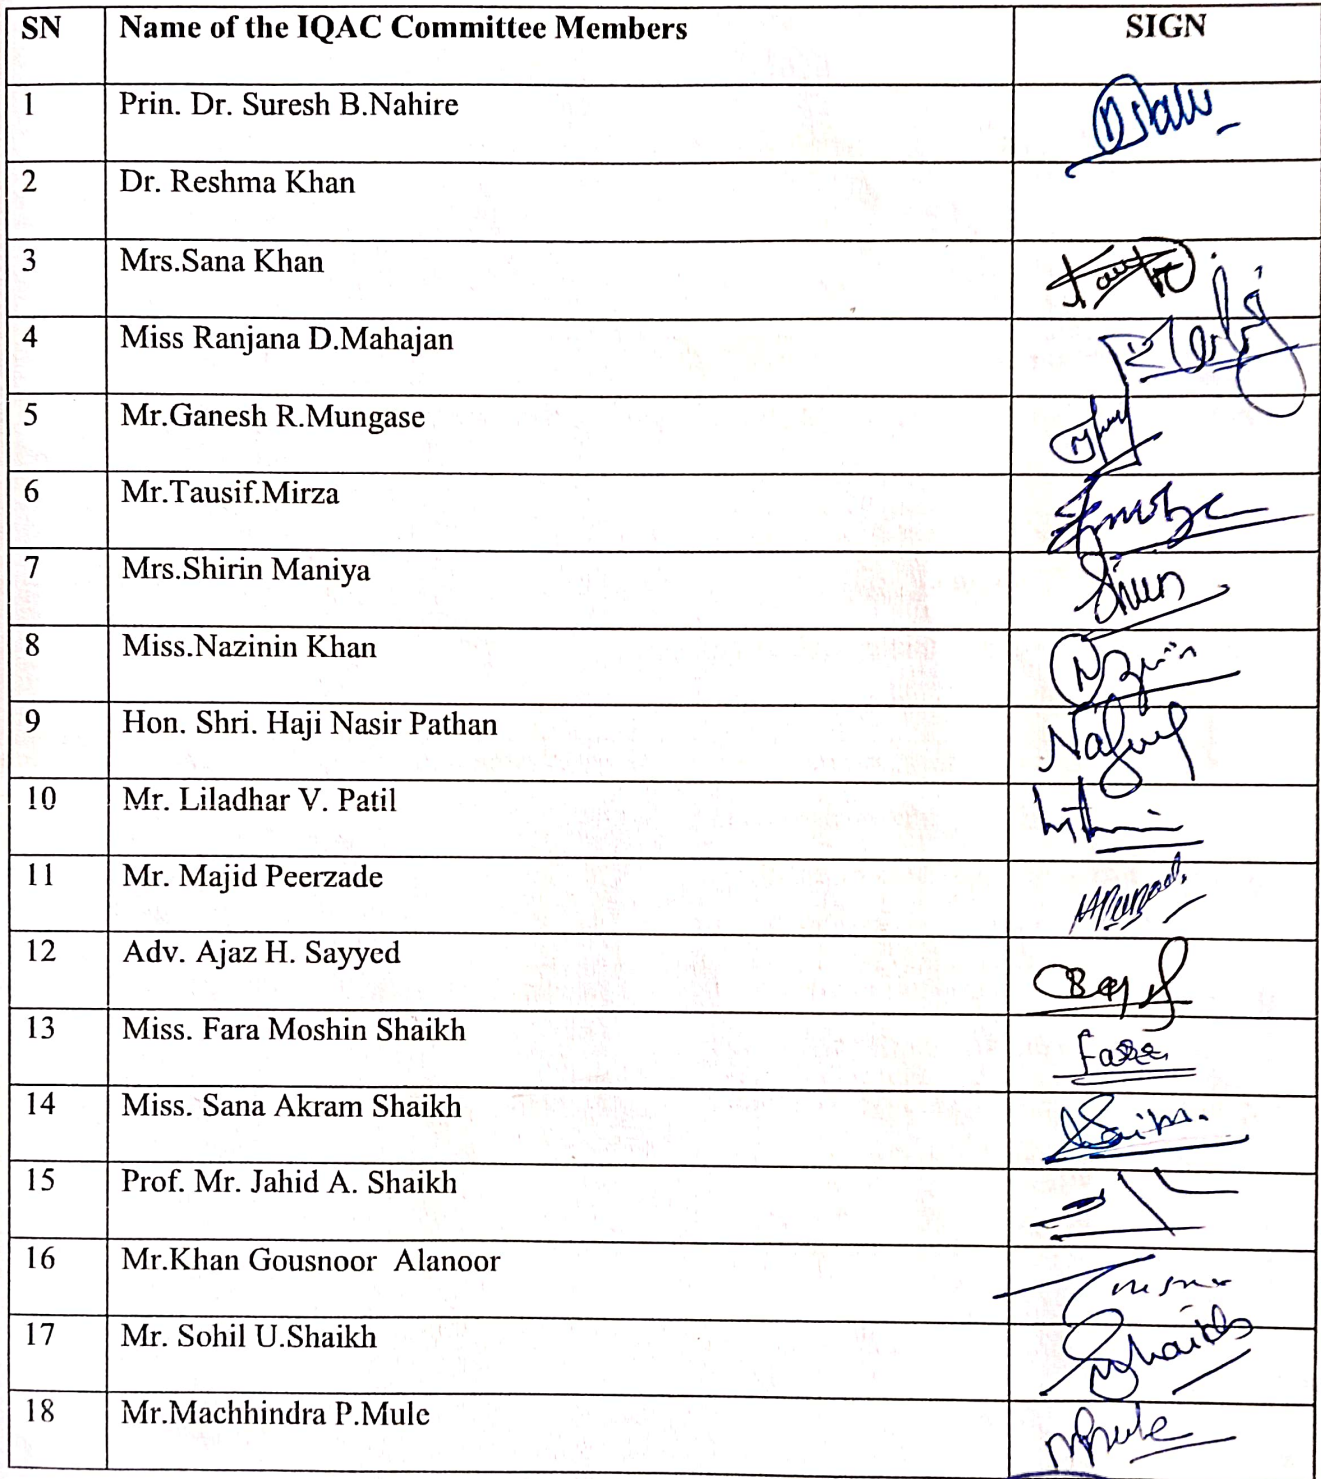 SN Name of the IQAC Committee Members SIGN
1 Prin. Dr. Suresh B.Nahire
2 Dr. Reshma Khan
3 Mrs.Sana Khan
4 Miss Ranjana D.Mahajan
5 Mr.Ganesh R.Mungase
6 Mr.Tausif.Mirza
7 Mrs.Shirin Maniya
8 Miss.Nazinin Khan
9 Hon. Shri. Haji Nasir Pathan
10 Mr. Liladhar V. Patil
11 Mr. Majid Peerzade
12 Adv. Ajaz H. Sayyed
13 Miss. Fara Moshin Shaikh
14 Miss. Sana Akram Shaikh
15 Prof. Mr. Jahid A. Shaikh
16 Mr.Khan Gousnoor Alanoor
17 Mr. Sohil U.Shaikh
18 Mr.Machhindra P.Mule